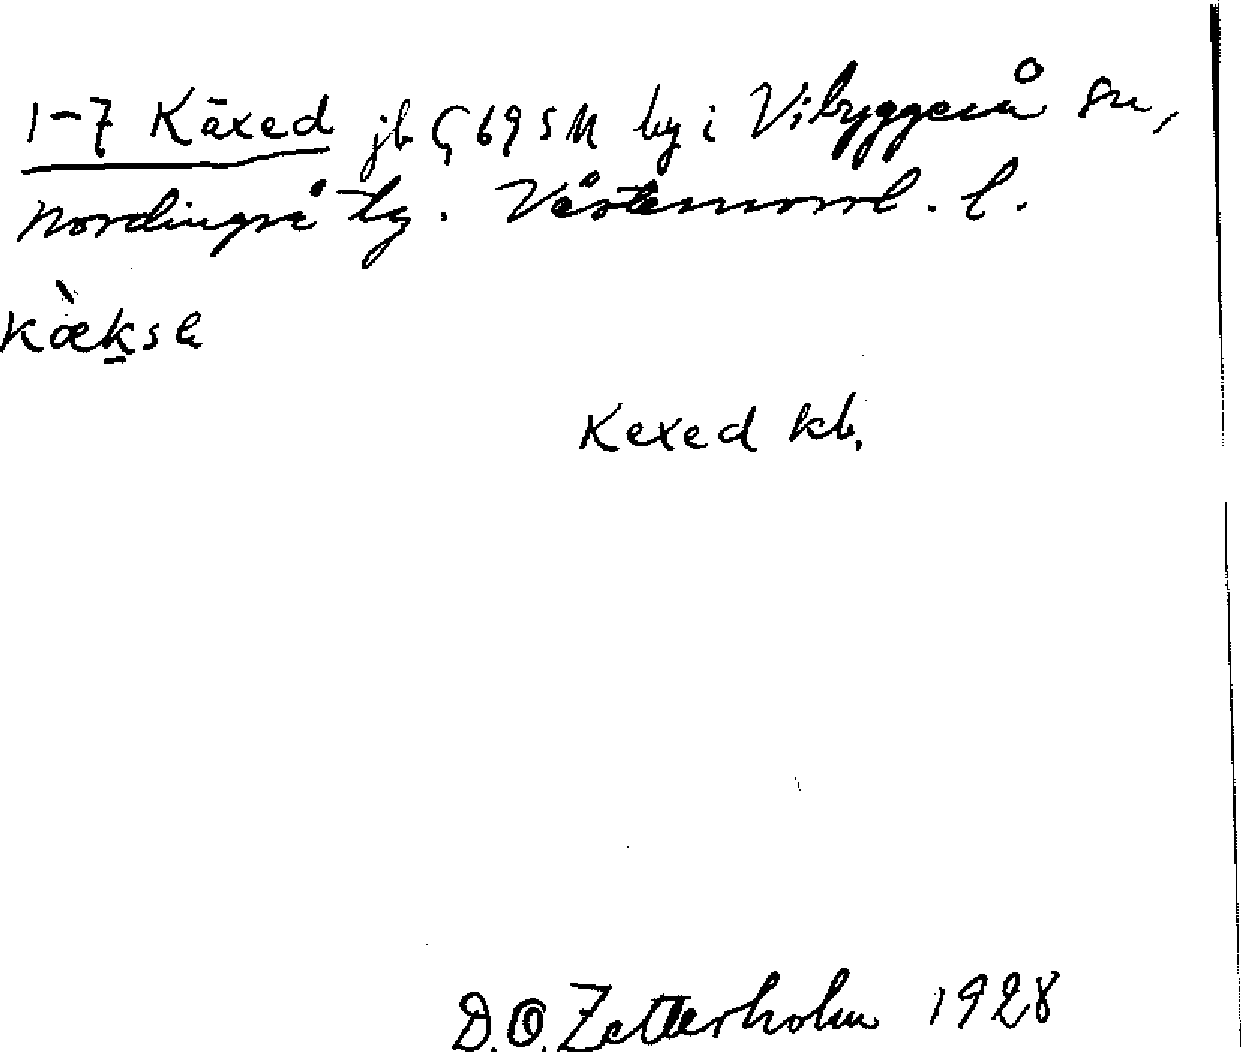 1-7 Käxed jb Ç 69 5 M by i Vibyggerå sn,
Nordingrå tg. Västernorrl. l.
kὰkse
Kexed kb.
D.O. Zetterholm 1928